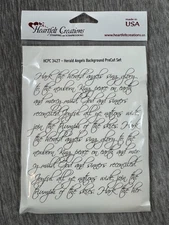 Heartfelt Creations
made in
USA
www.heartfeltcreations.us
HCPC 3427 - Herald Angels Background PreCut Set
Hark the herald angels sing glory
to the newborn King peace on earth
and mercy mild God and sinners
reconciled Joyful all ye nations rise
join the triumph of the skies Hark the
herald angels sing glory to the
newborn King peace on earth and mercy
mild God and sinners reconciled
Joyful all ye nations rise join the
triumph of the skies Hark the her